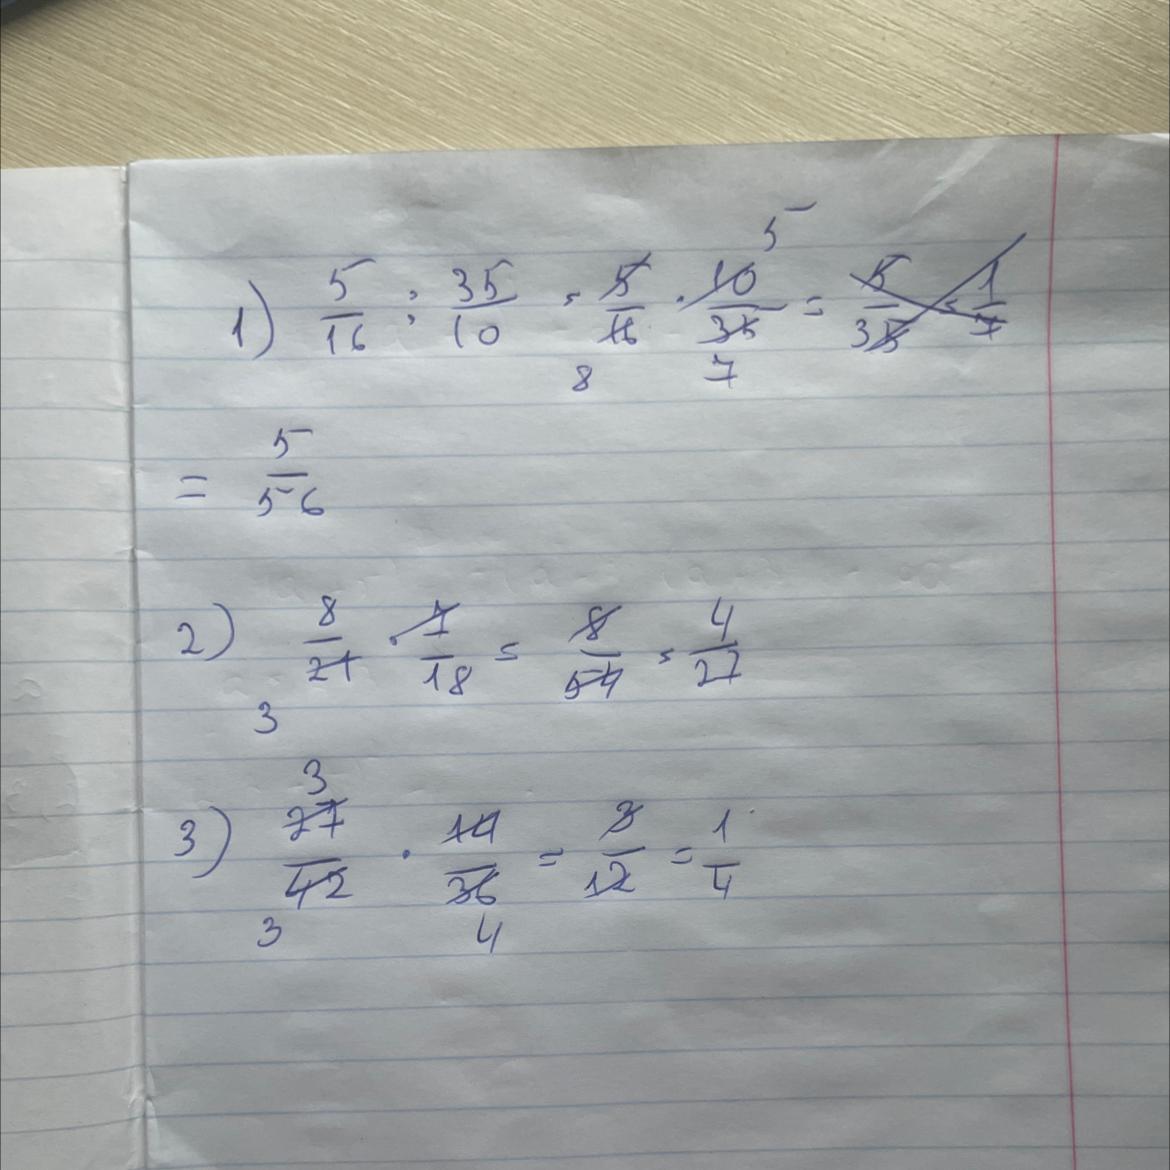 1) 5/16 : 35/10 = 5/16 · 10/35 = 5/35 = 1/7
5
8 7
= 5/56
2) 8/21 · 7/18 = 8/54 = 4/27
3
3
3) 27/42 · 14/36 = 3/12 = 1/4
3 4